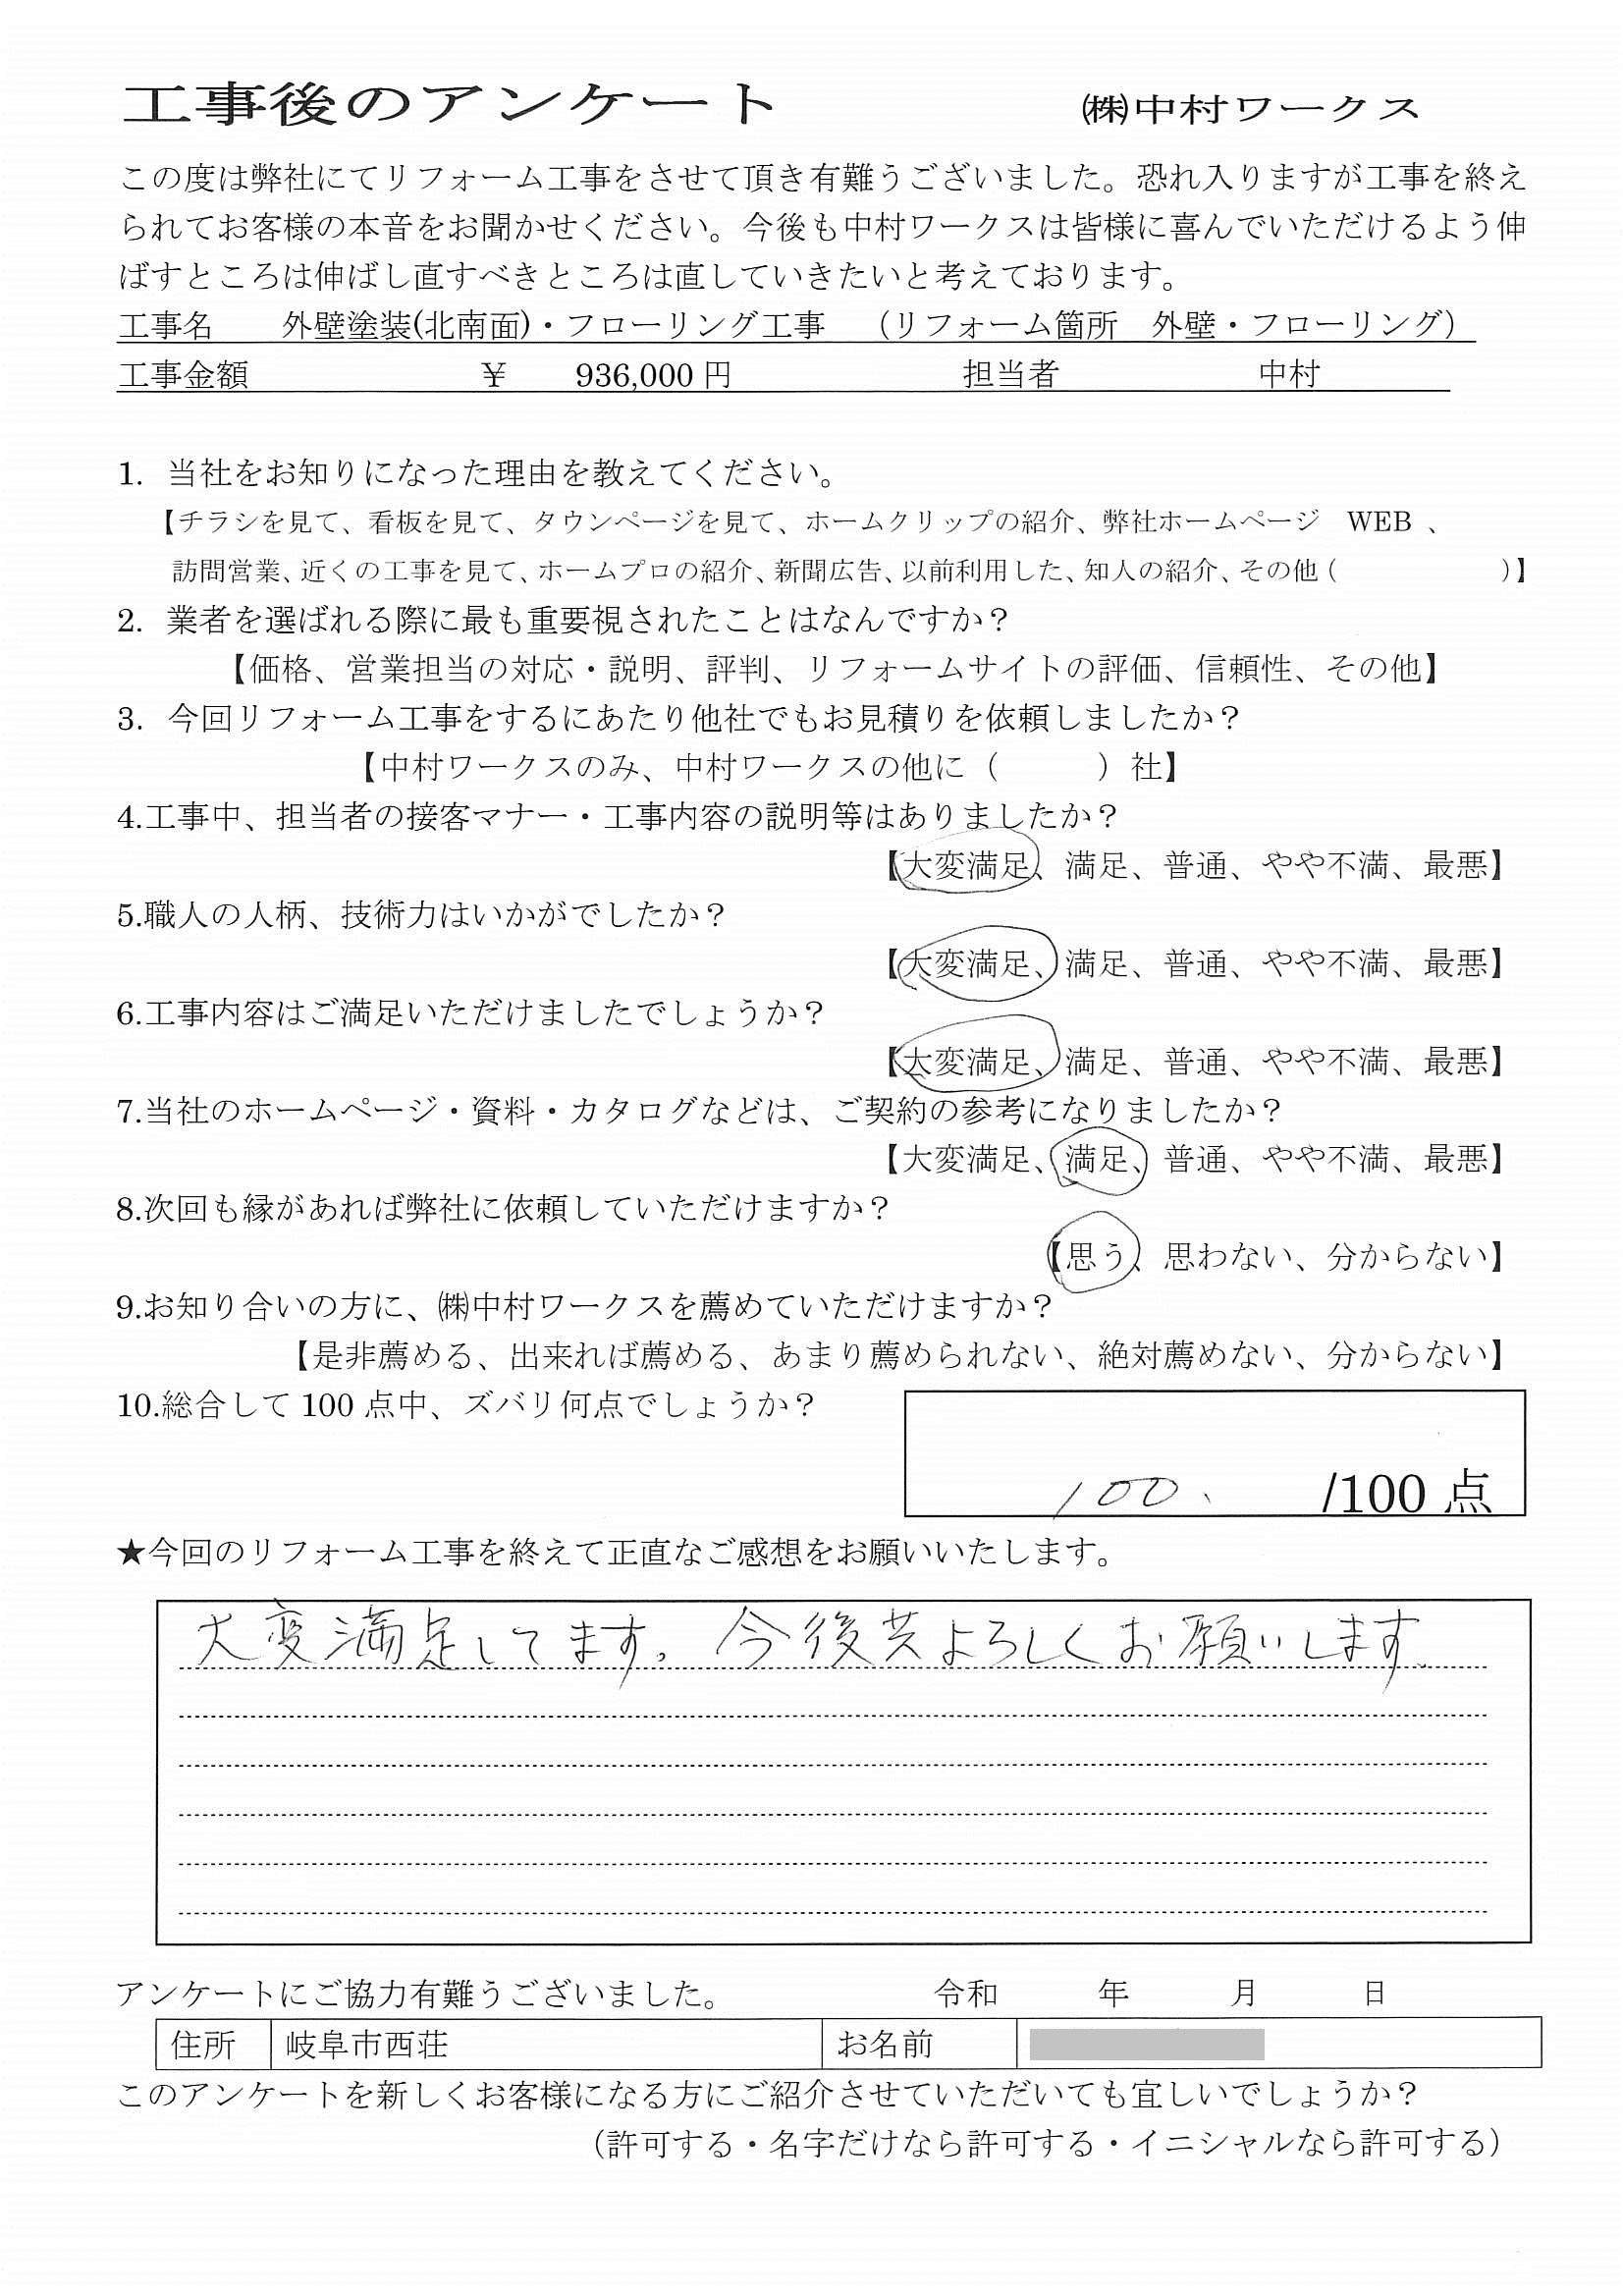 工事後のアンケート　㈱中村ワークス
この度は弊社にてリフォーム工事をさせて頂き有難うございました。恐れ入りますが工事を終え
られてお客様の本音をお聞かせください。今後も中村ワークスは皆様に喜んでいただけるよう伸
ばすところは伸ばし直すべきところは直していきたいと考えております。
工事名　外壁塗装(北南面)・フローリング工事　（リフォーム箇所　外壁・フローリング）
工事金額　￥　936,000 円　担当者　中村
1. 当社をお知りになった理由を教えてください。
【チラシを見て、看板を見て、タウンページを見て、ホームクリップの紹介、弊社ホームページ　WEB 、
訪問営業、近くの工事を見て、ホームプロの紹介、新聞広告、以前利用した、知人の紹介、その他（　　　　　）】
2. 業者を選ばれる際に最も重要視されたことはなんですか？
【価格、営業担当の対応・説明、評判、リフォームサイトの評価、信頼性、その他】
3. 今回リフォーム工事をするにあたり他社でもお見積りを依頼しましたか？
【中村ワークスのみ、中村ワークスの他に（　　　）社】
4.工事中、担当者の接客マナー・工事内容の説明等はありましたか？
【大変満足、満足、普通、やや不満、最悪】
5.職人の人柄、技術力はいかがでしたか？
【大変満足、満足、普通、やや不満、最悪】
6.工事内容はご満足いただけましたでしょうか？
【大変満足、満足、普通、やや不満、最悪】
7.当社のホームページ・資料・カタログなどは、ご契約の参考になりましたか？
【大変満足、満足、普通、やや不満、最悪】
8.次回も縁があれば弊社に依頼していただけますか？
【思う、思わない、分からない】
9.お知り合いの方に、㈱中村ワークスを薦めていただけますか？
【是非薦める、出来れば薦める、あまり薦められない、絶対薦めない、分からない】
10.総合して 100 点中、ズバリ何点でしょうか？
100、　/100 点
★今回のリフォーム工事を終えて正直なご感想をお願いいたします。
大変満足してます。今後共よろしくお願いします。
アンケートにご協力有難うございました。　令和　　年　　月　　日
住所　岐阜市西荘　お名前
このアンケートを新しくお客様になる方にご紹介させていただいても宜しいでしょうか？
（許可する・名字だけなら許可する・イニシャルなら許可する）